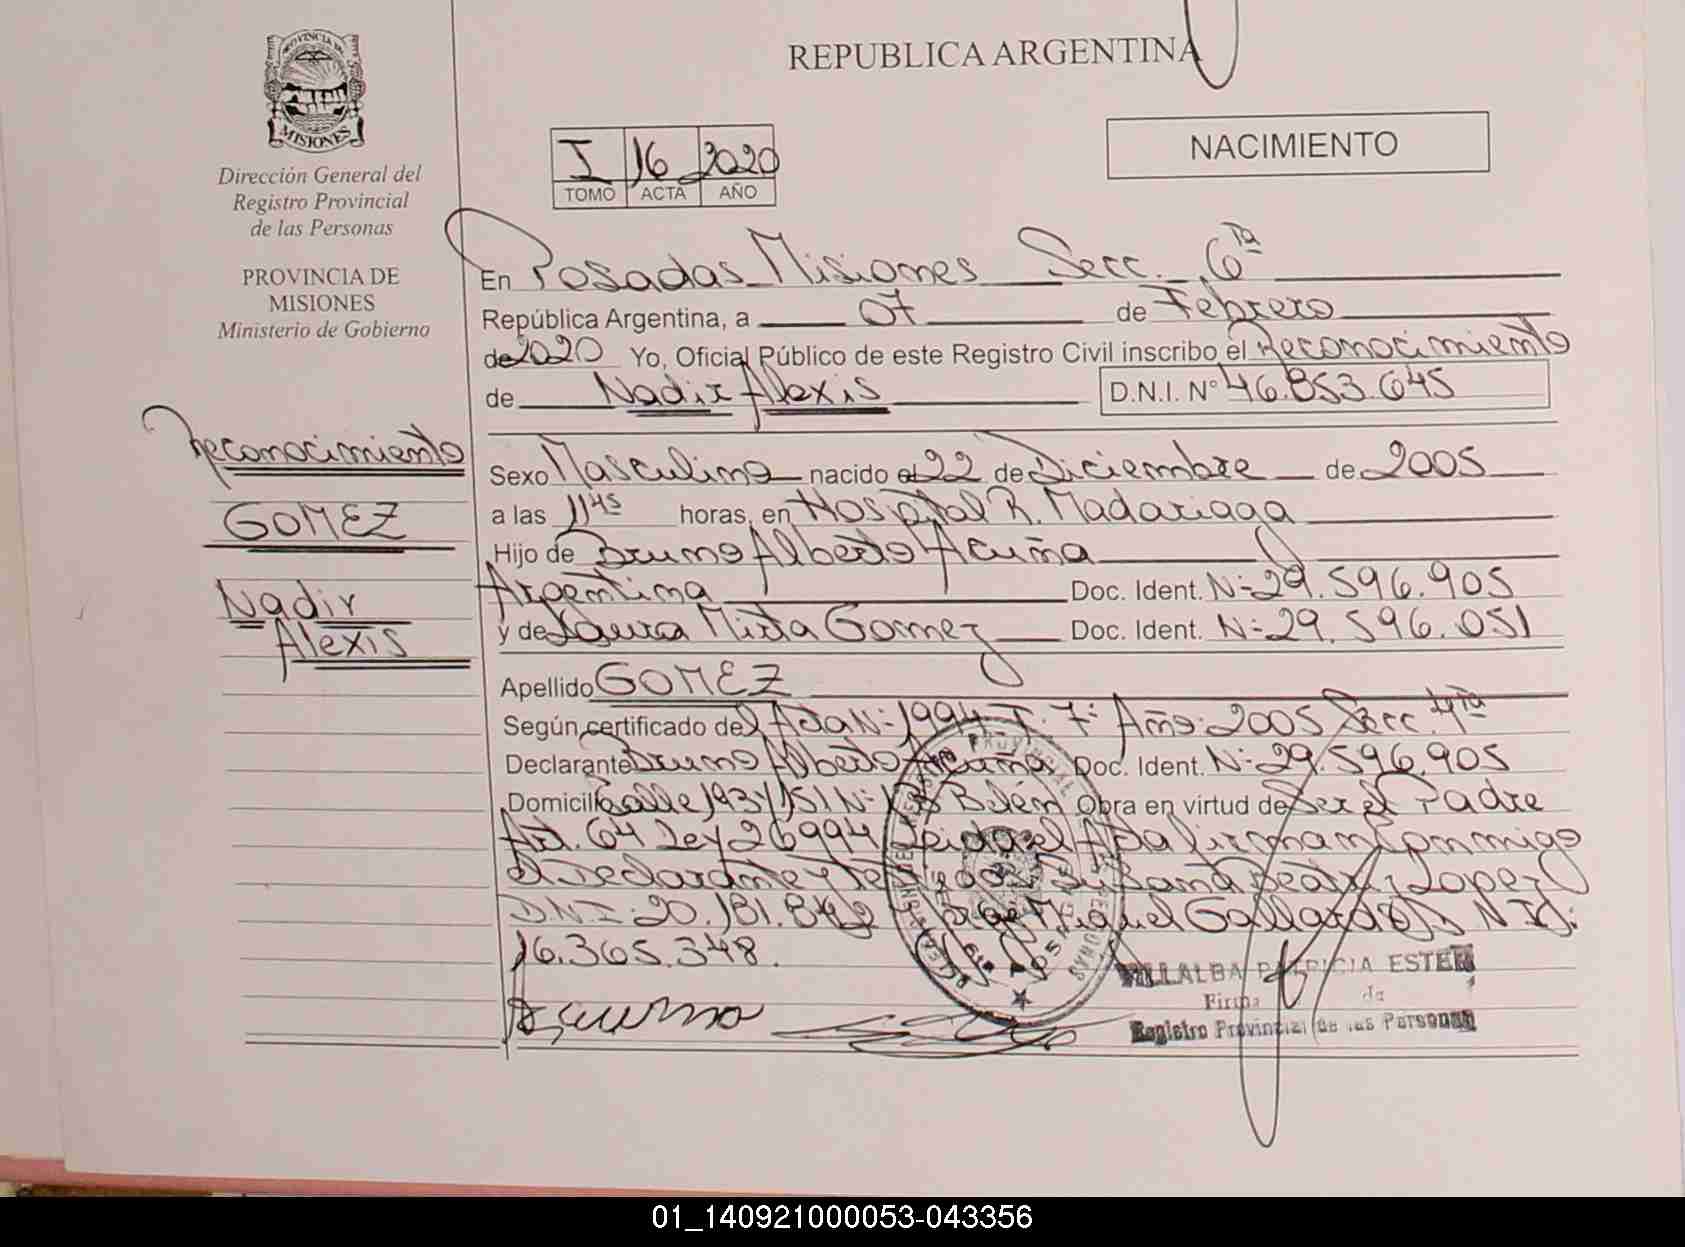 PROVINCIA DE
MISIONES
Dirección General del
Registro Provincial
de las Personas
PROVINCIA DE
MISIONES
Ministerio de Gobierno
REPUBLICA ARGENTINA
I 16 2020
TOMO ACTA AÑO
NACIMIENTO
En Posadas Misiones Secc. 6ta
República Argentina, a 07 de Febrero
de 2020 Yo, Oficial Público de este Registro Civil inscribo el Reconocimiento
de Nadir Alexis D.N.I. N° 46.853.645
Reconocimiento
GOMEZ
Nadir
Alexis
Sexo Masculino nacido el 22 de Diciembre de 2005
a las 11 45 horas, en Hospital R. Madariaga
Hijo de Bruno Alberto Acuña
Argentina Doc. Ident. N° 29.596.905
y de Laura Mirta Gomez Doc. Ident. N° 29.596.051
Apellido GOMEZ
Según certificado del Acta N° 1994 T. 7° Año: 2005 Secc. 4ta
Declarante Bruno Alberto Acuña Doc. Ident. N° 29.596.905
Domicilio Calle 193 y 151 N° Belén Obra en virtud de Ser el Padre
Art. 64 Ley 26994 Leida el Acta firman conmigo
el Declarante y Testigos: Susana Beatriz Lopez
D.N.I: 20.181.842 Jorge Miguel Gallardo D.N.I:
16.365.348.
VILLALBA PATRICIA ESTER
Firma de
Registro Provincial de las Personas
01_140921000053-043356